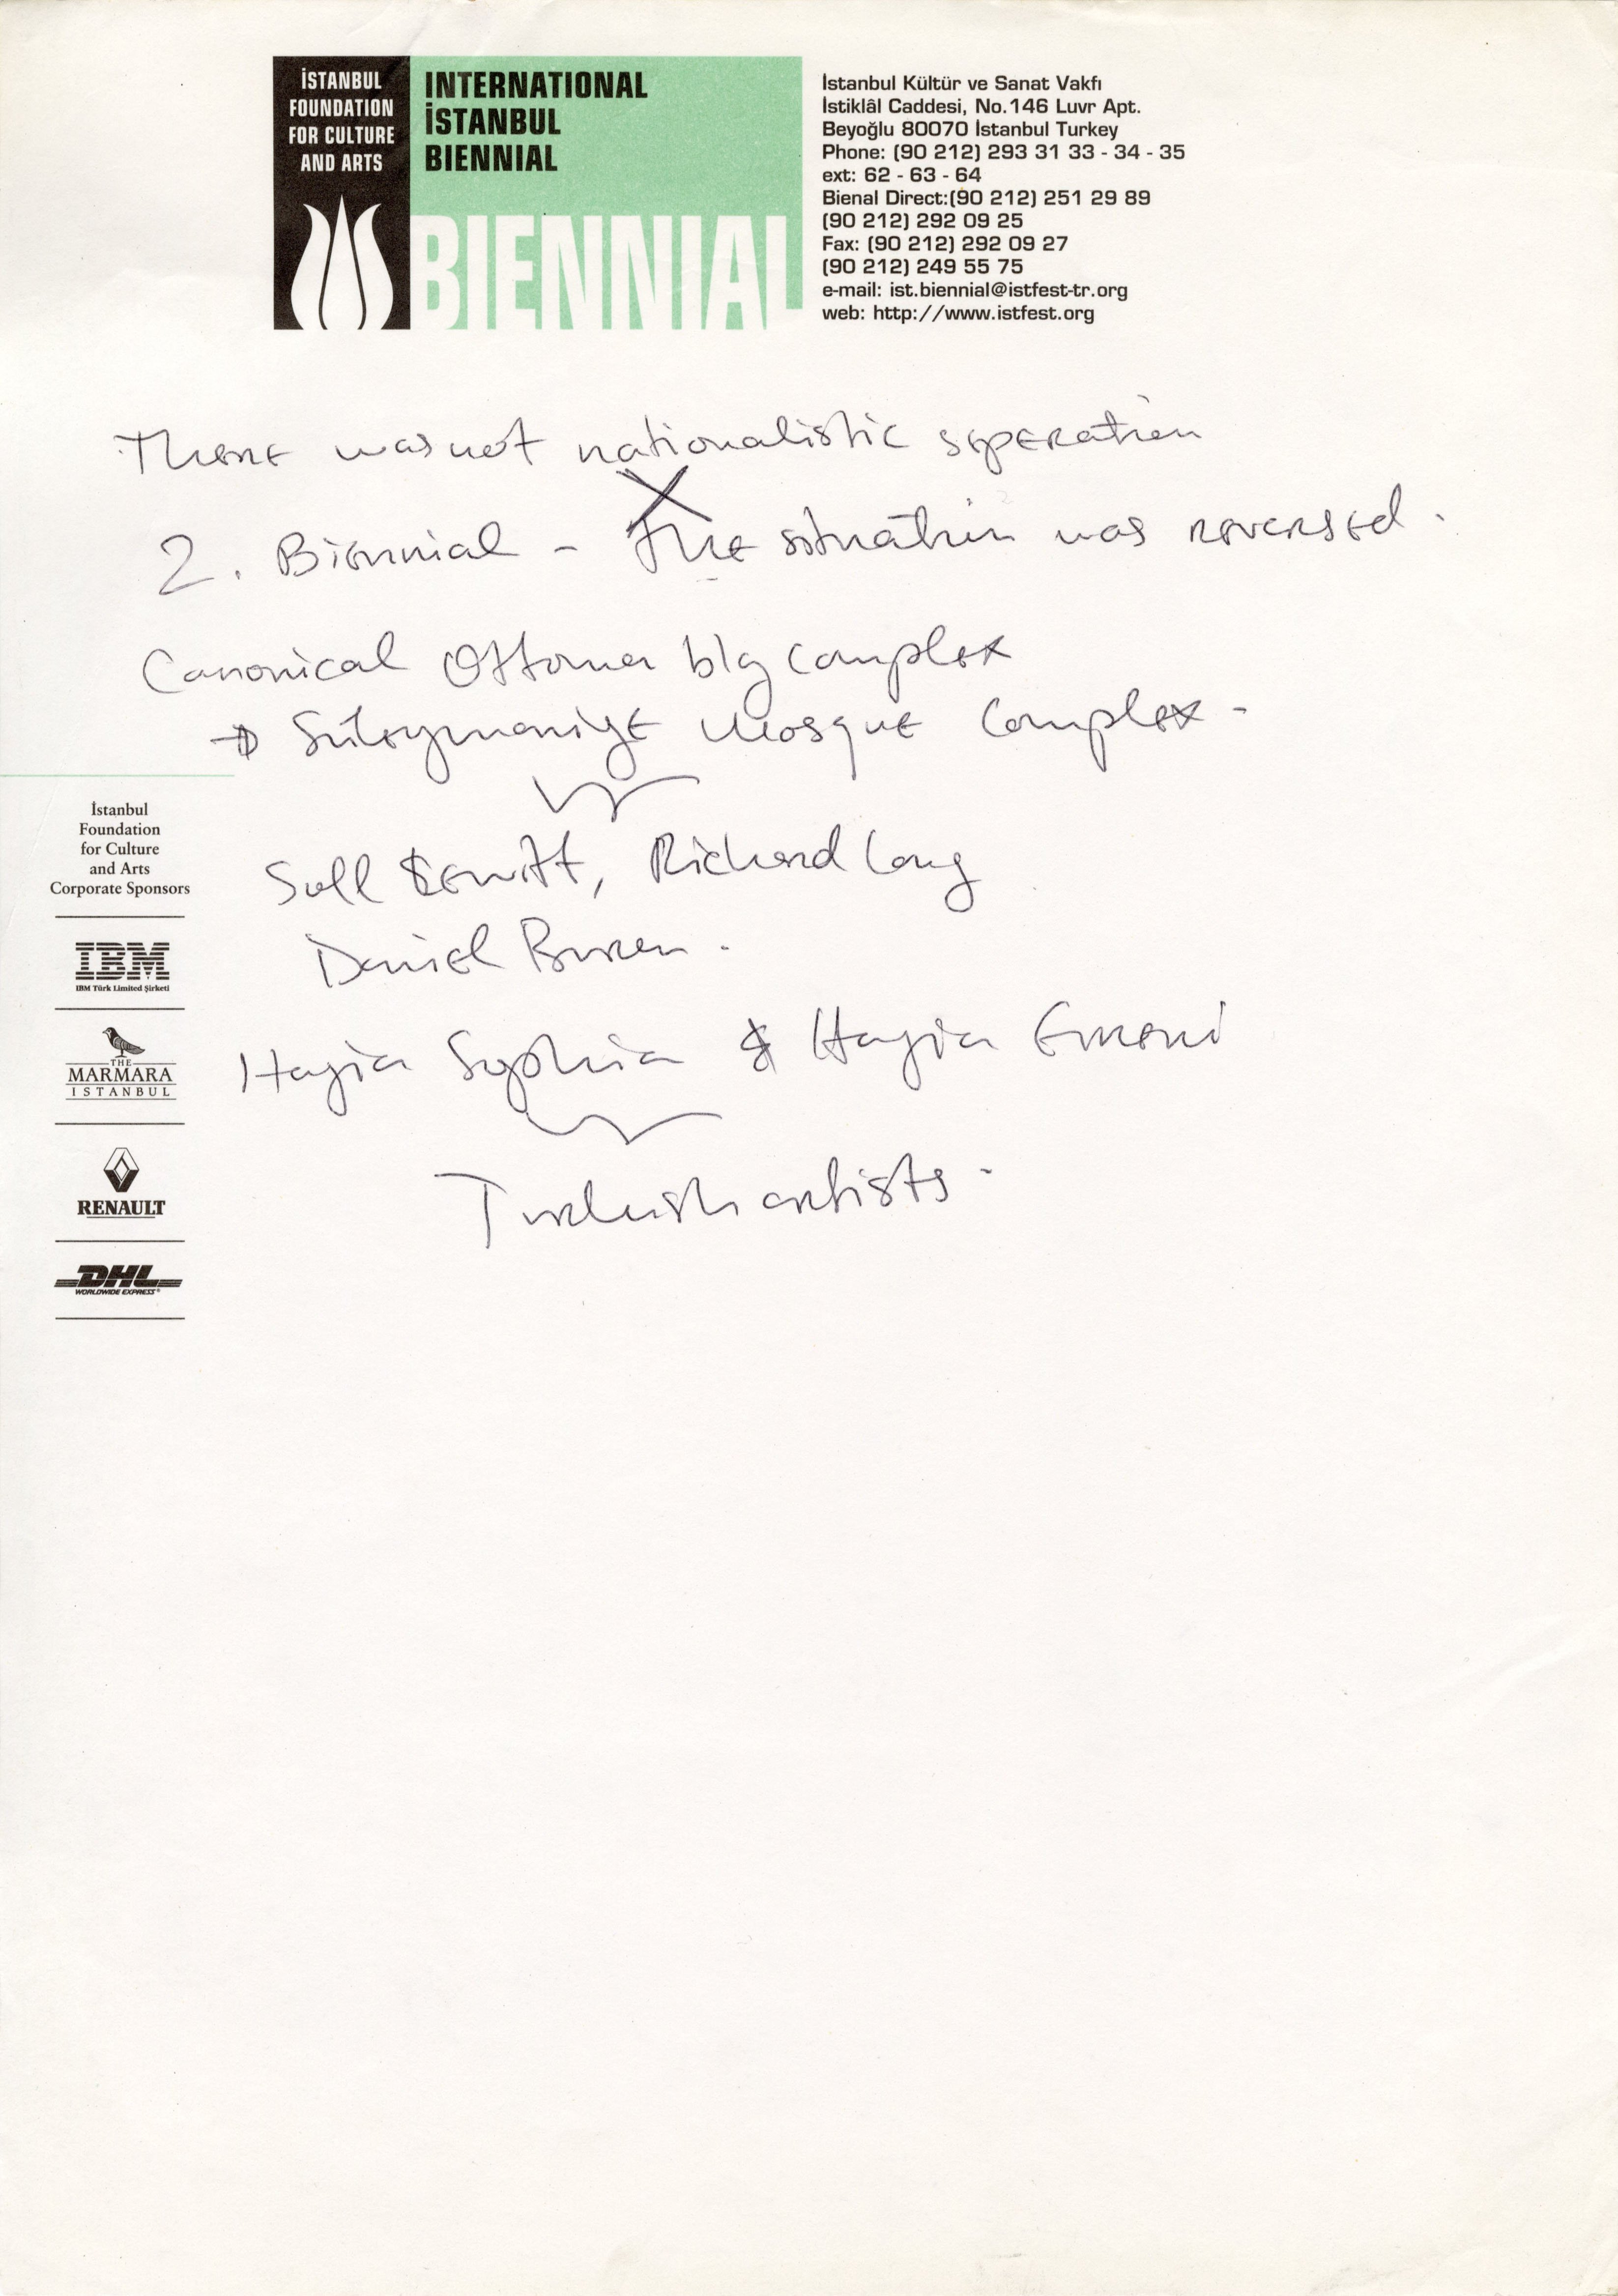 İSTANBUL
FOUNDATION
FOR CULTURE
AND ARTS
INTERNATIONAL
İSTANBUL
BIENNIAL
BIENNIAL
İstanbul Kültür ve Sanat Vakfı
İstiklâl Caddesi, No.146 Luvr Apt.
Beyoğlu 80070 İstanbul Turkey
Phone: (90 212) 293 31 33 - 34 - 35
ext: 62 - 63 - 64
Bienal Direct:(90 212) 251 29 89
(90 212) 292 09 25
Fax: (90 212) 292 09 27
(90 212) 249 55 75
e-mail: ist.biennial@istfest-tr.org
web: http://www.istfest.org
There was not nationalistic seperation
2. Biennial - The situation was reversed.
Canonical Ottoman big complex
→ Süleymaniye Mosque Complex -
Soll Lewitt, Richard Long
Daniel Buren.
Hagia Sophia & Hagia Eireni
Turkish artists.
İstanbul
Foundation
for Culture
and Arts
Corporate Sponsors
IBM
IBM Türk Limited Şirketi
THE
MARMARA
ISTANBUL
RENAULT
DHL
WORLDWIDE EXPRESS®